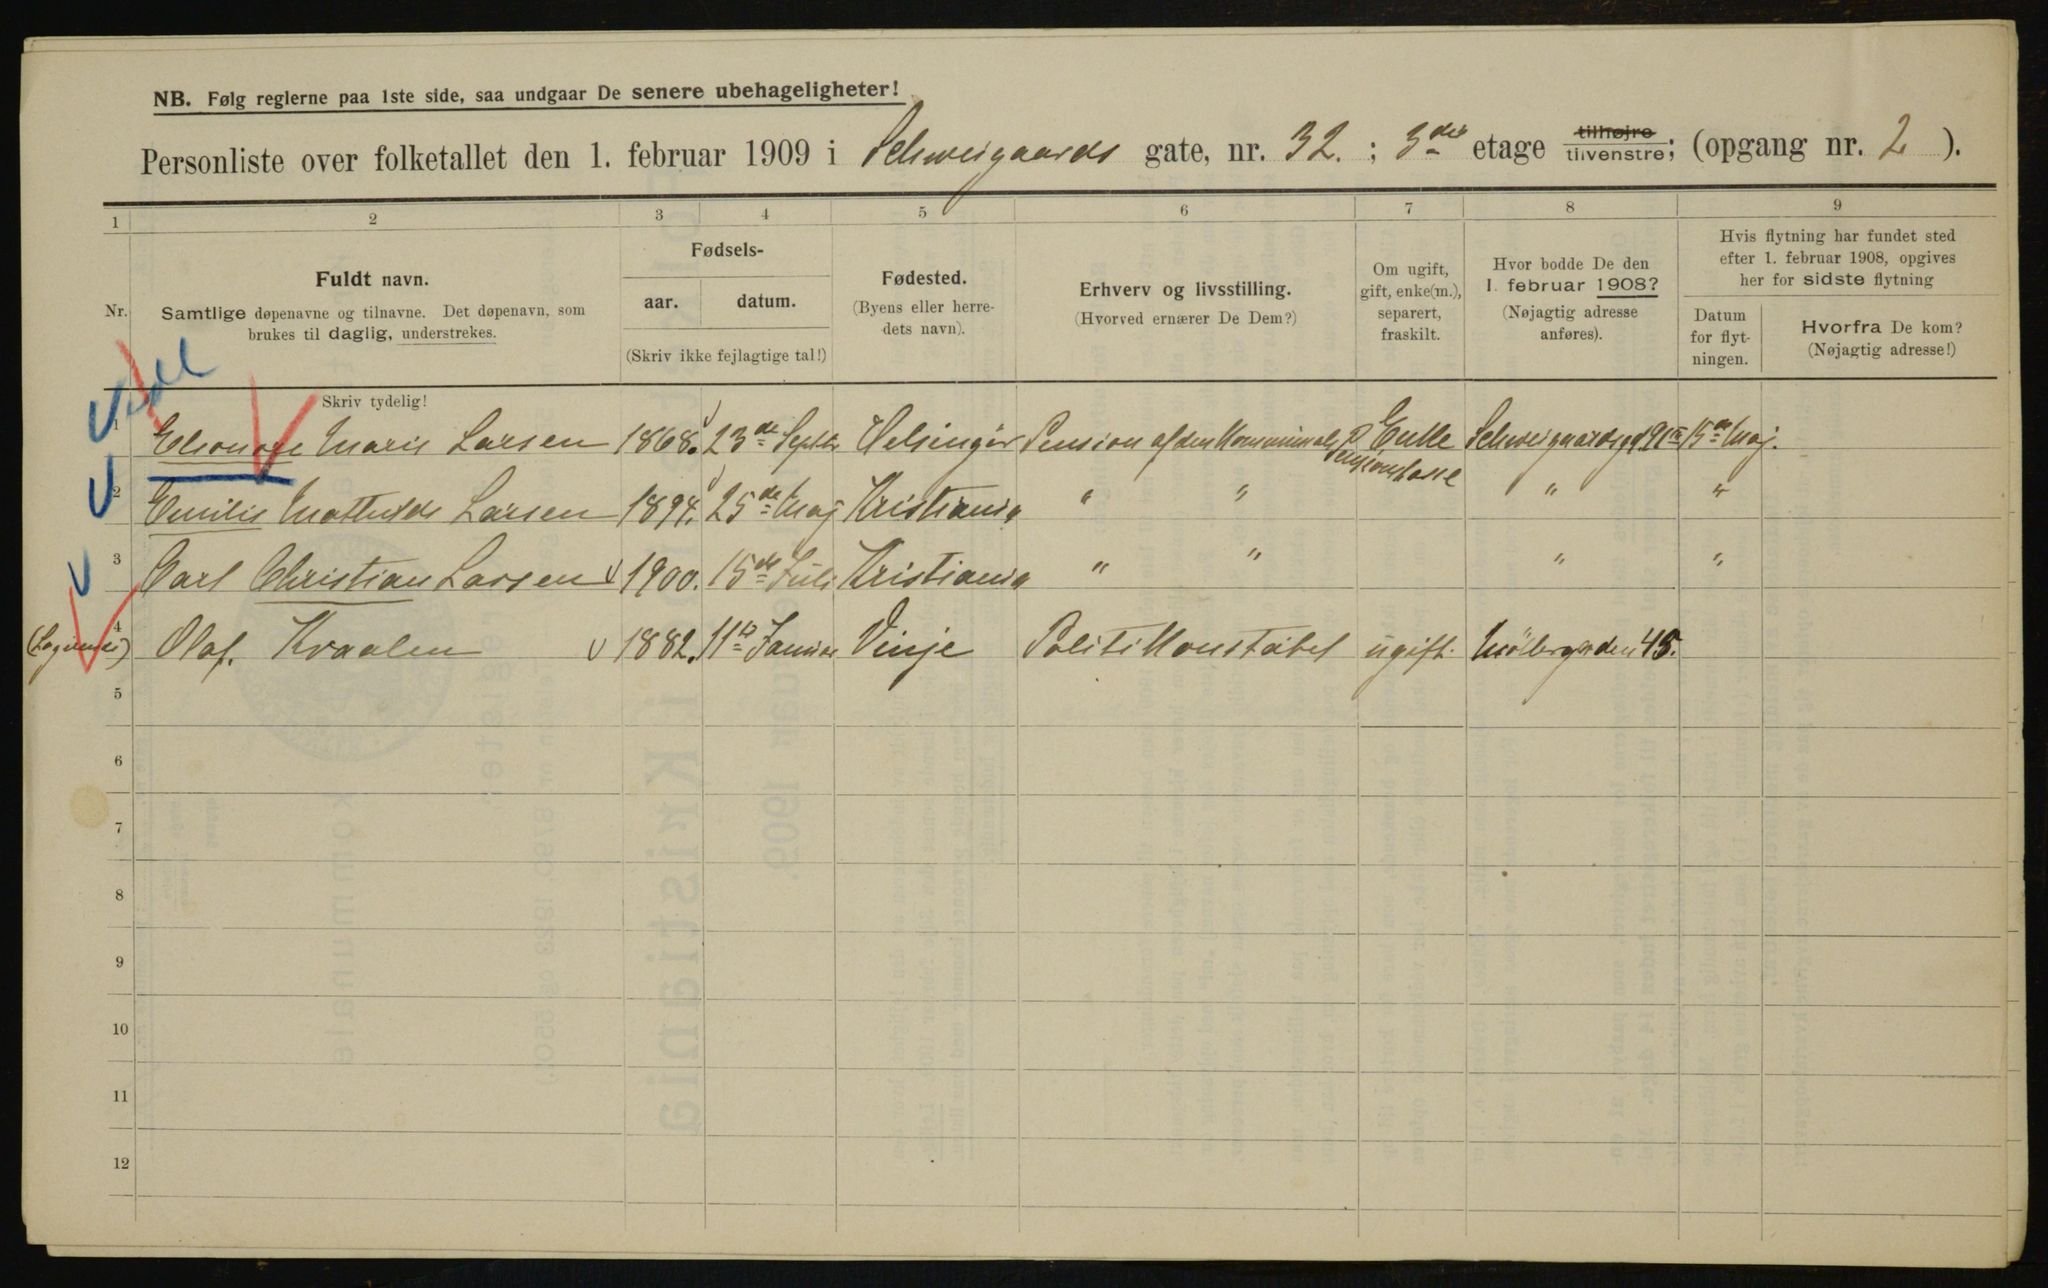 NB. Følg reglerne paa 1ste side, saa undgaar De senere ubehageligheter!
Personliste over folketallet den 1. februar 1909 i Schweigaards gate, nr. 32. ; 3die etage tilhøjre tilvenstre; (opgang nr. 2 ).
1 2 3 4 5 6 7 8 9
Nr.
Fuldt navn.
Samtlige døpenavne og tilnavne. Det døpenavn, som
brukes til daglig, understrekes.
Skriv tydelig!
Fødsels-
aar. datum.
(Skriv ikke fejlagtige tal!)
Fødested.
(Byens eller herre-
dets navn).
Erhverv og livsstilling.
(Hvorved ernærer De Dem?)
Om ugift,
gift, enke(m.),
separert,
fraskilt.
Hvor bodde De den
1. februar 1908?
(Nøjagtig adresse
anføres).
Hvis flytning har fundet sted
efter 1. februar 1908, opgives
her for sidste flytning
Datum
for flyt-
ningen.
Hvorfra De kom?
(Nøjagtig adresse!)
1 Eleonore Marie Larsen 1868. 23de Septbr Helsingør Pension af den Kommunale Pensionskasse Enke Schweigaardsgd. 91 15de Maj.
2 Emilie Mathilde Larsen 1894. 25de Maj Kristiania " " " "
3 Carl Christian Larsen 1900. 15de Juli Kristiania " " " "
4 (Logerende) Olaf. Kraalen 1882. 11te Januar Vinje Politikonstabel ugift. Möllergaden 45.
5
6
7
8
9
10
11
12